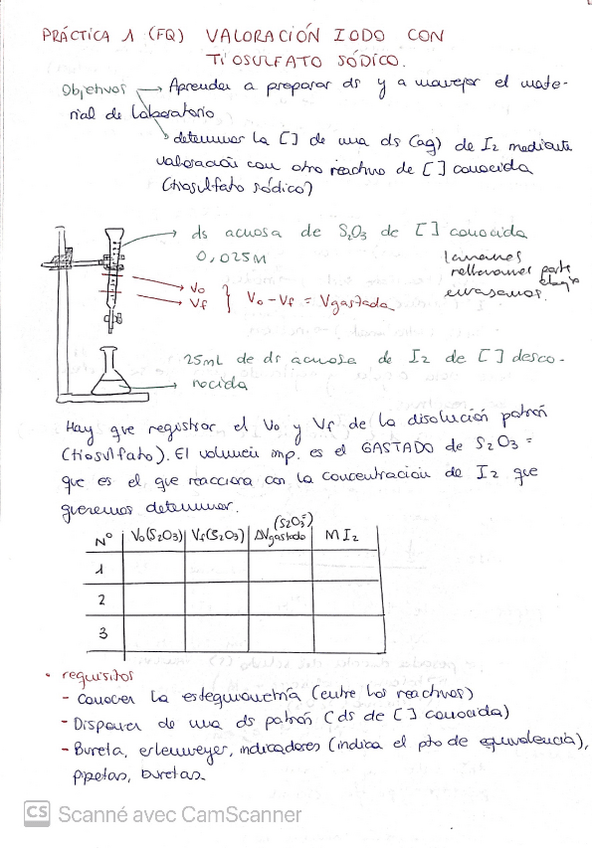 PRÁCTICA 1 (FQ) VALORACIÓN IODO CON
TIOSULFATO SÓDICO.
Objetivos → Aprender a preparar ds y a manejar el mate-
rial de laboratorio
→ determinar la [] de una ds (aq) de I2 mediante
valoración con otro reactivo de [] conocida
(tiosulfato sódico)
→ ds acuosa de S2O3 de [] conocida
0,025M
lavamos
rellenamos parte
enrasamos.
→ Vo
→ Vf } Vo - Vf = Vgastada
25mL de ds acuosa de I2 de [] desco-
→ nocida
Hay que registrar el Vo y Vf de la disolución patrón
(tiosulfato). El volumen imp. es el GASTADO de S2O3=
que es el que reacciona con la concentración de I2 que
queremos determinar.
Nº Vo(S2O3) Vf(S2O3) ΔVgastado (S2O3=) M I2
1
2
3
• requisitos
- Conocer la estequiometría (entre los reactivos)
- Disponer de una ds patrón (ds de [] conocida)
- Bureta, erlenmeyer, indicadores (indica el pto de equivalencia),
pipetas, buretas.
CS Scanné avec CamScanner